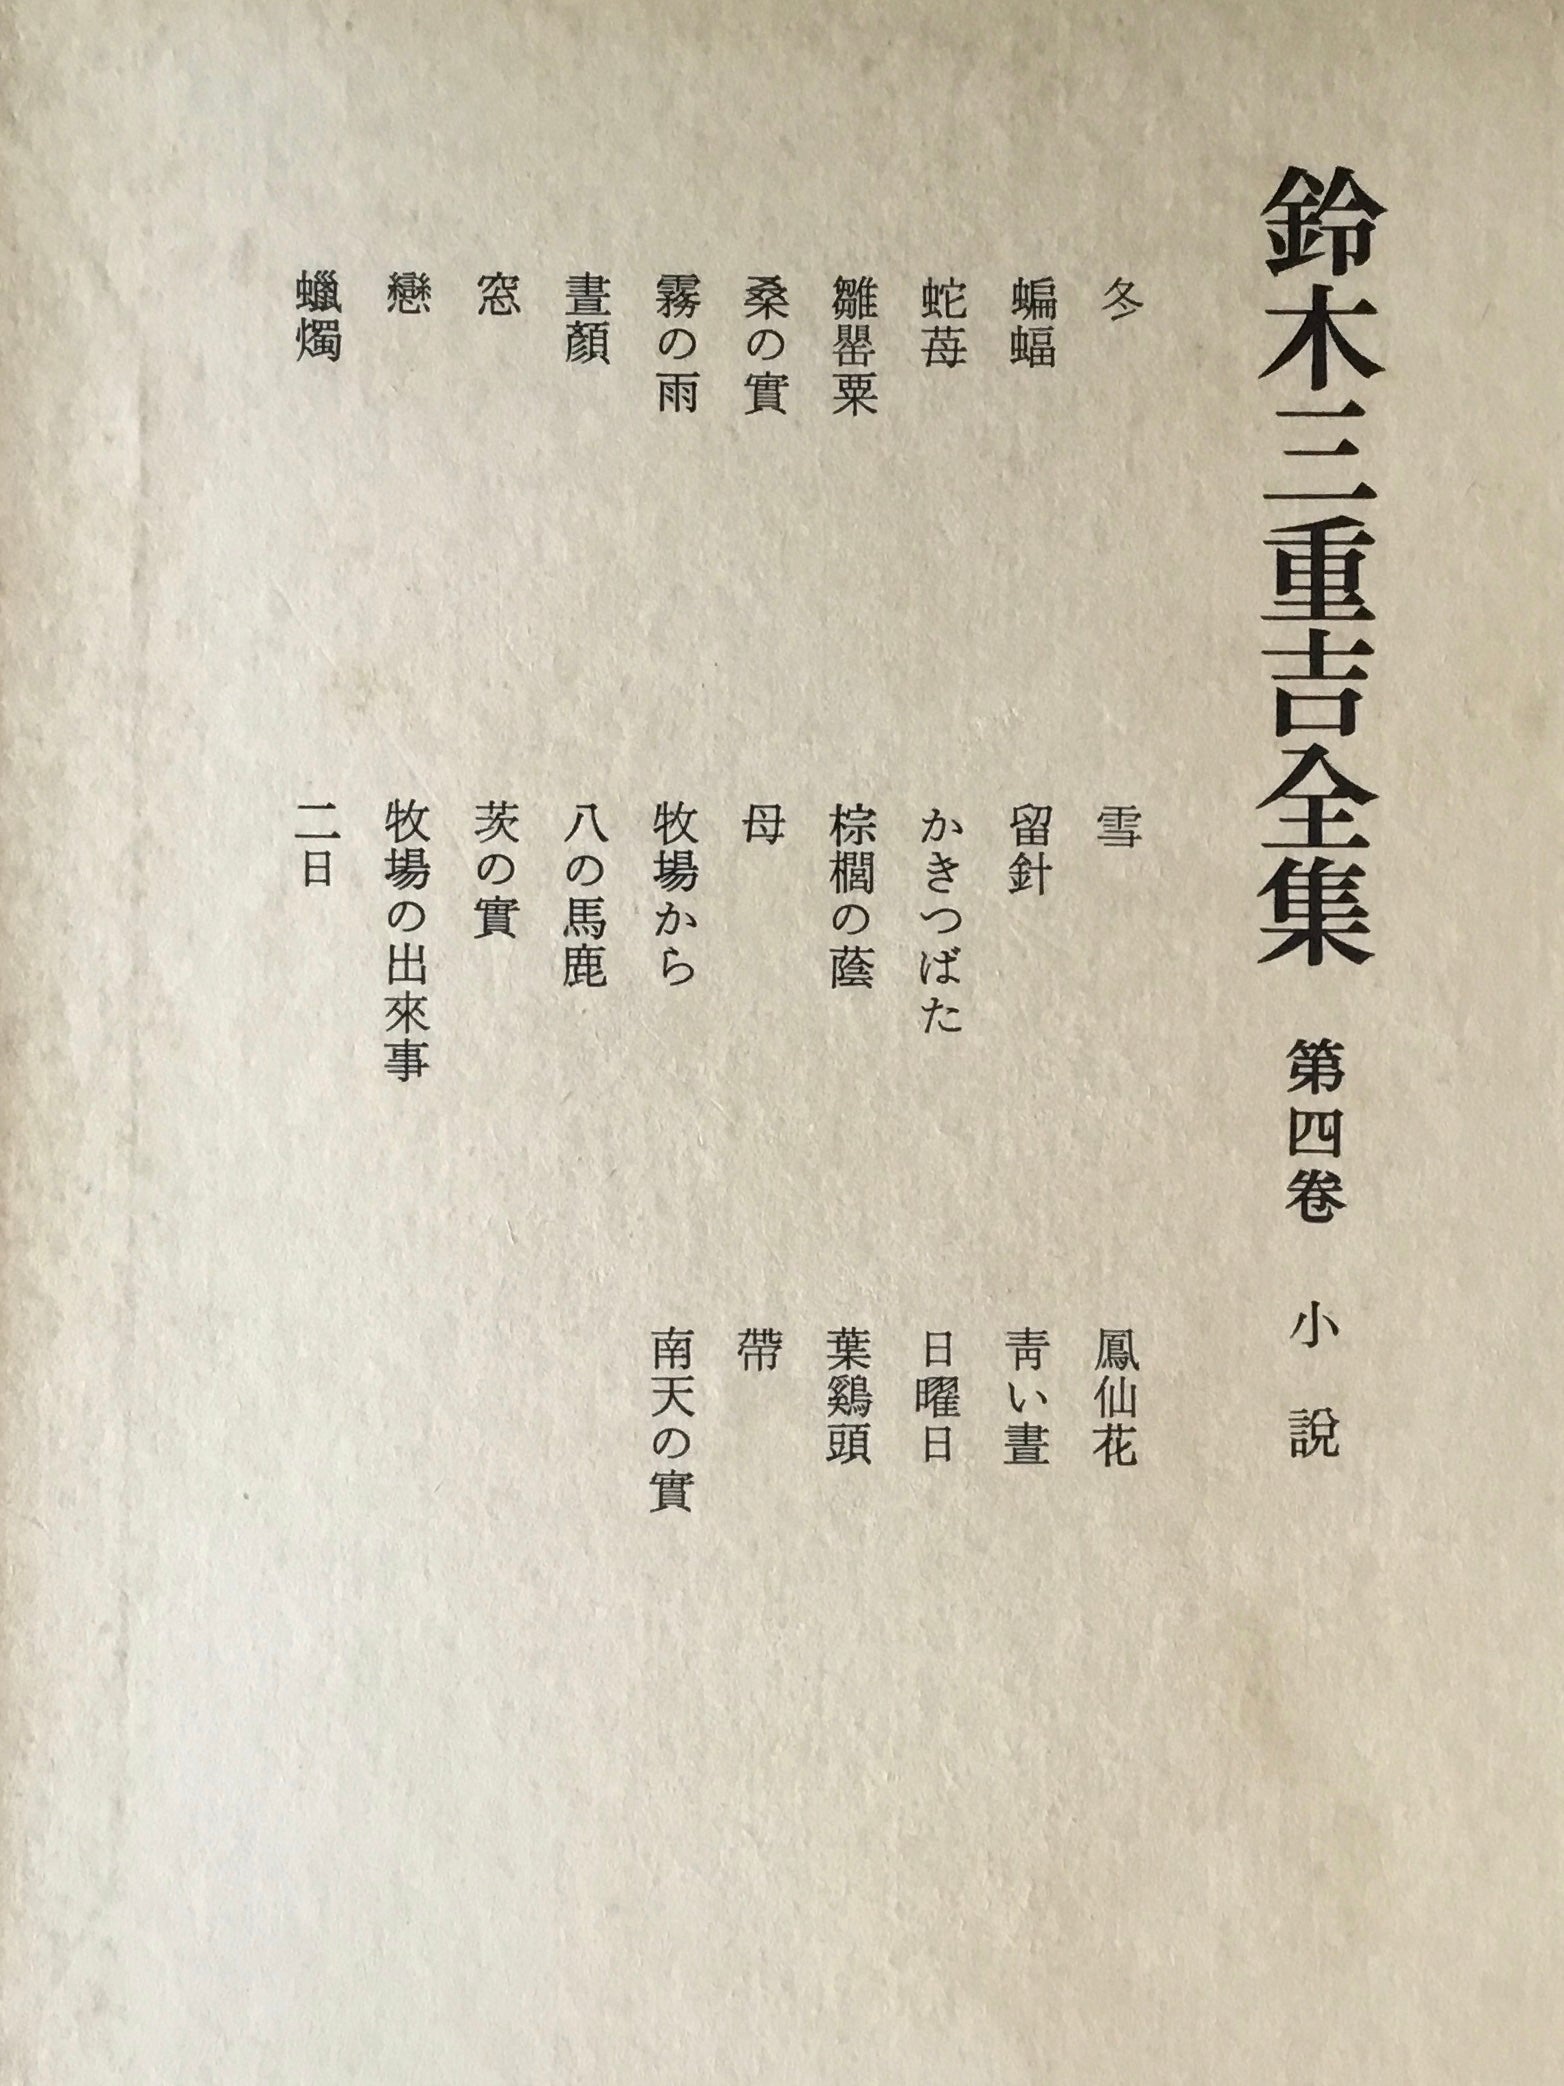 鈴木三重吉全集 第四卷 小說
冬
蝙蝠
蛇苺
雛罌粟
桑の實
霧の雨
晝顏
窓
戀
蠟燭
雪
留針
かきつばた
棕櫚の蔭
母
牧場から
八の馬鹿
茨の實
牧場の出來事
二日
鳳仙花
靑い晝
日曜日
葉鷄頭
帶
南天の實